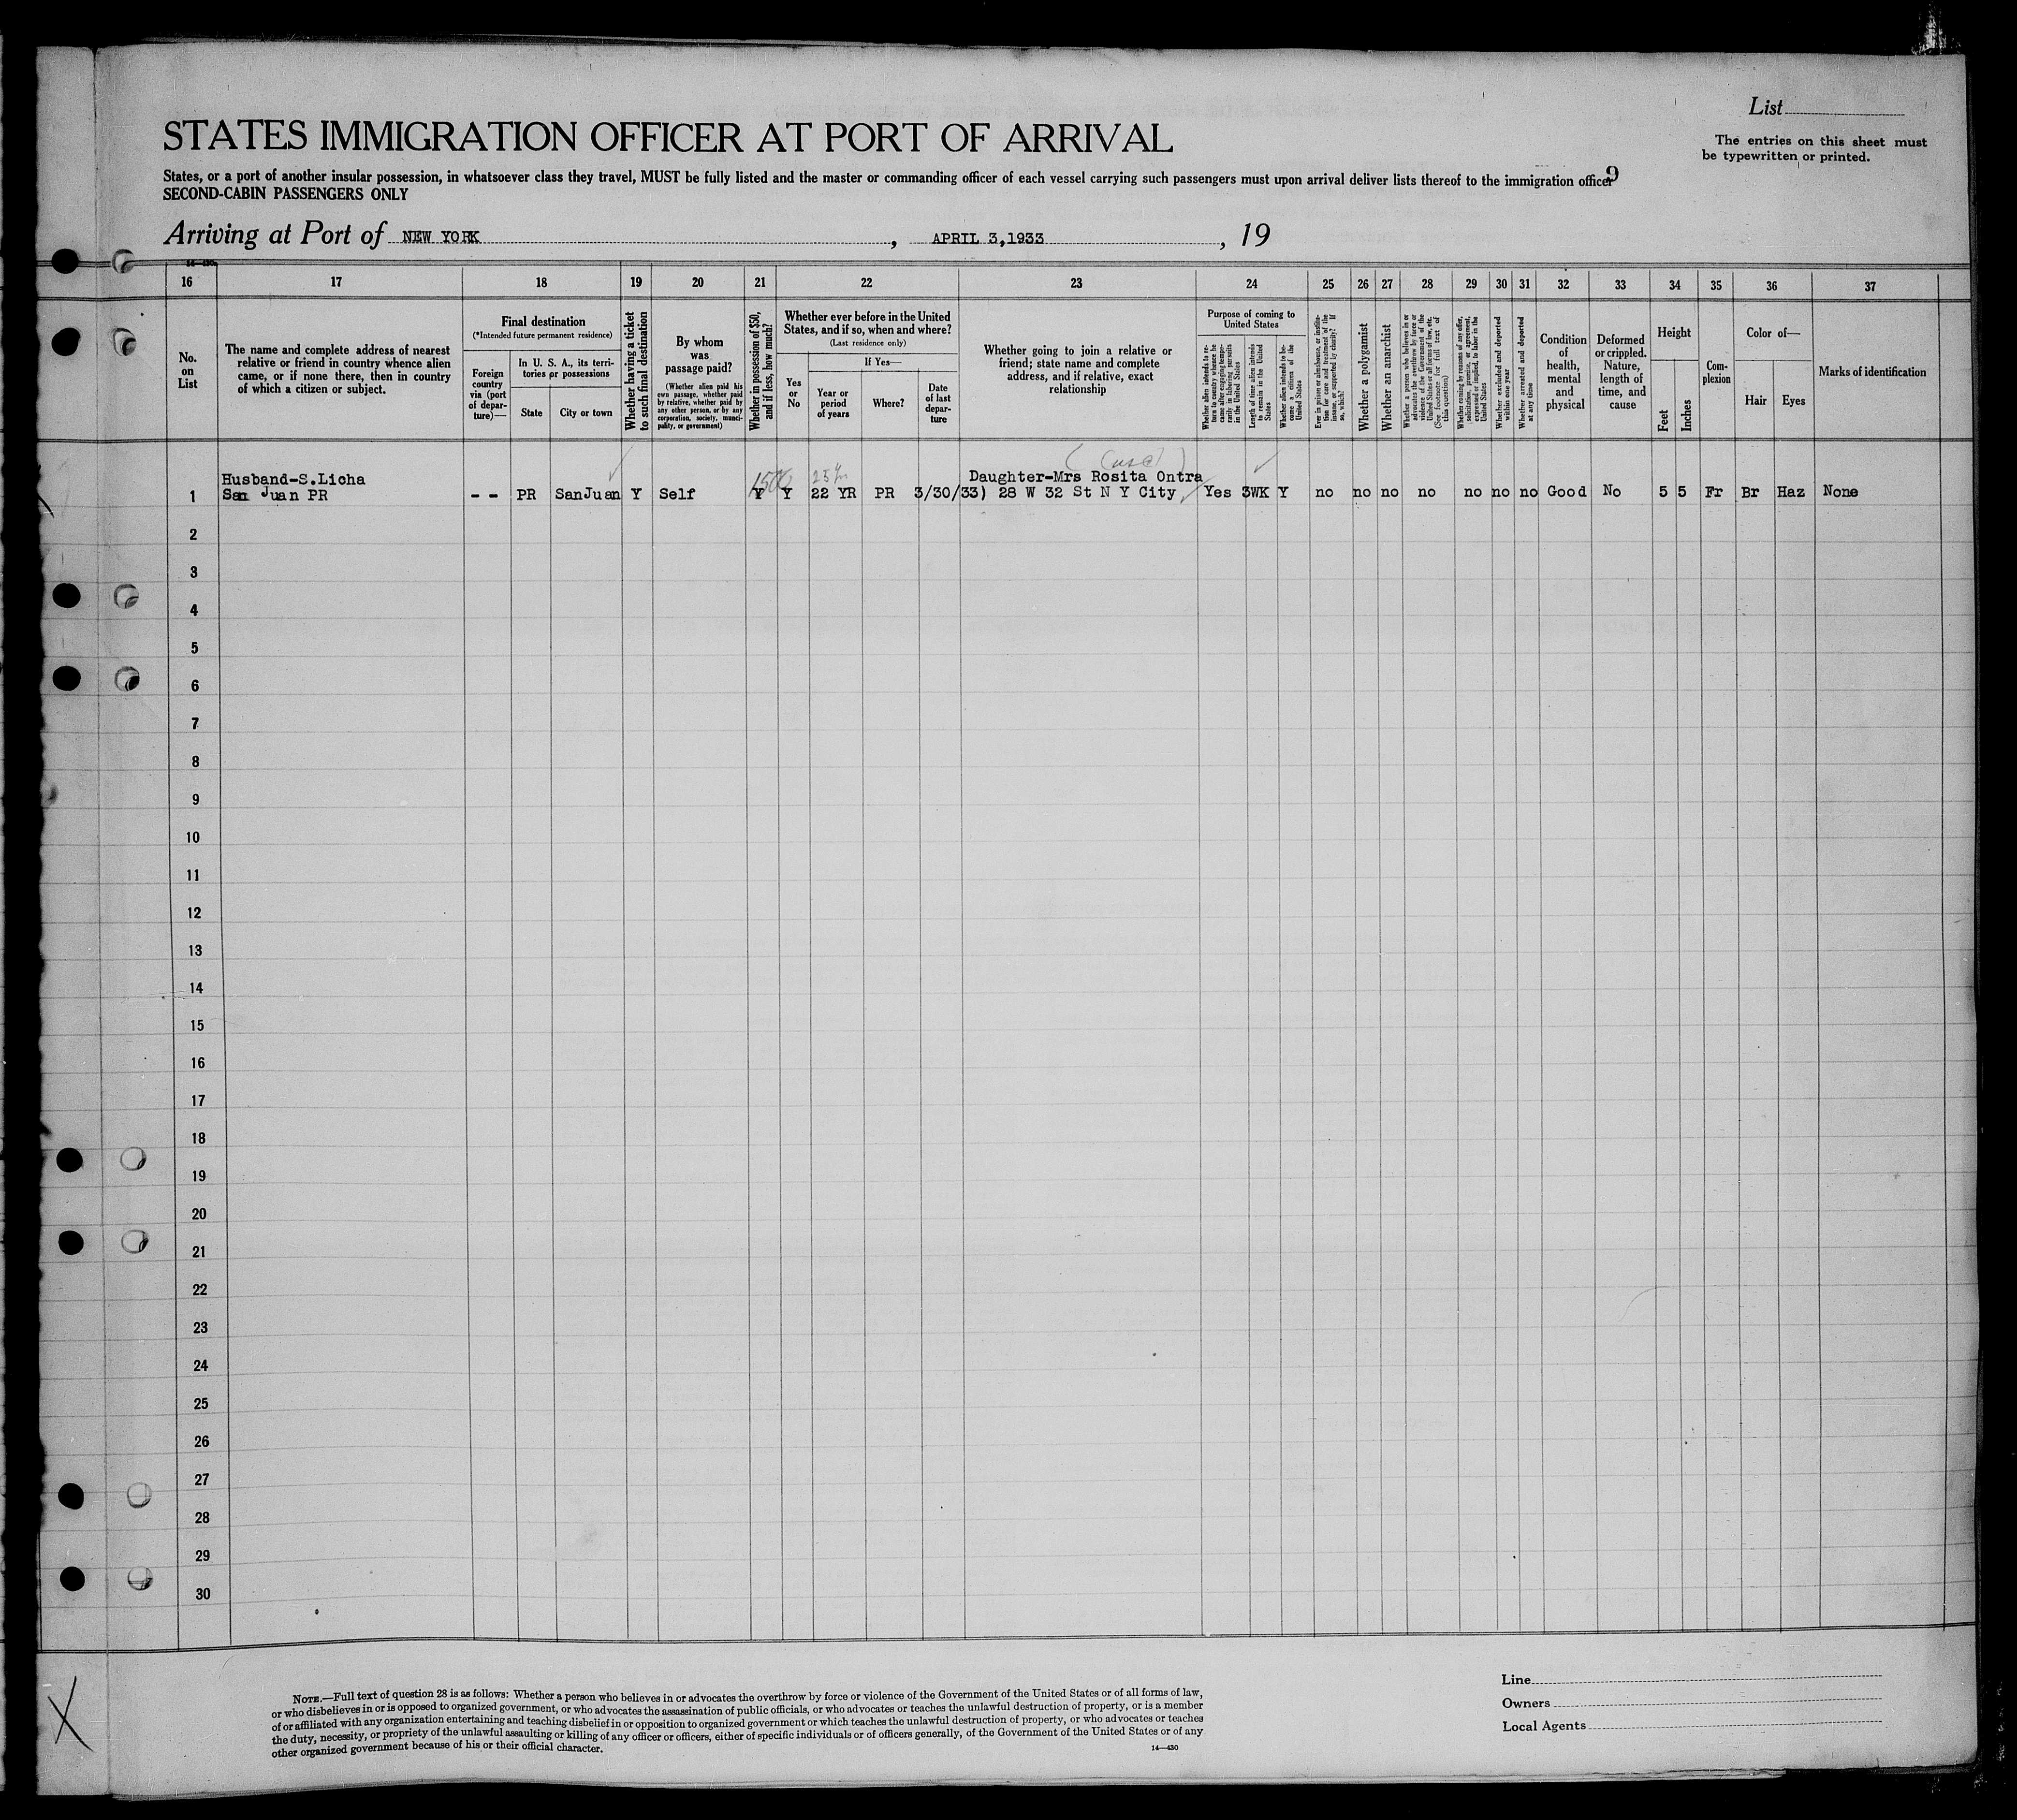 List
STATES IMMIGRATION OFFICER AT PORT OF ARRIVAL
The entries on this sheet must
be typewritten or printed.
States, or a port of another insular possession, in whatsoever class they travel, MUST be fully listed and the master or commanding officer of each vessel carrying such passengers must upon arrival deliver lists thereof to the immigration officer
9
SECOND-CABIN PASSENGERS ONLY
Arriving at Port of NEW YORK, APRIL 3,1933, 19
16 17 18 19 20 21 22 23 24 25 26 27 28 29 30 31 32 33 34 35 36 37
No.
on
List
The name and complete address of nearest
relative or friend in country whence alien
came, or if none there, then in country
of which a citizen or subject.
Final destination
(*Intended future permanent residence)
Foreign
country
via (port
of depar-
ture)—
In U. S. A., its terri-
tories or possessions
State
City or town
Whether having a ticket
to such final destination
By whom
was
passage paid?
(Whether alien paid his
own passage, whether paid
by relative, whether paid by
any other person, or by any
corporation, society, munici-
pality, or government)
Whether in possession of $50,
and if less, how much?
Whether ever before in the United
States, and if so, when and where?
(Last residence only)
Yes
or
No
If Yes—
Year or
period
of years
Where?
Date
of last
depar-
ture
Whether going to join a relative or
friend; state name and complete
address, and if relative, exact
relationship
Purpose of coming to
United States
Whether alien intends to re-
turn to country whence he
came after engaging tempo-
rarily in laboring pursuits
in the United States
Length of time alien intends
to remain in the United
States
Whether alien intends to be-
come a citizen of the
United States
Ever in prison or almshouse, or institu-
tion for care and treatment of the
insane, or supported by charity? If
so, which?
Whether a polygamist
Whether an anarchist
Whether a person who believes in or
advocates the overthrow by force or
violence of the Government of the
United States or all forms of law, etc.
(See footnote for full text of
this question)
Whether coming by reason of any offer,
solicitation, promise, or agreement,
expressed or implied, to labor in the
United States
Whether excluded and deported
within one year
Whether arrested and deported
at any time
Condition
of
health,
mental
and
physical
Deformed
or crippled.
Nature,
length of
time, and
cause
Height
Feet
Inches
Com-
plexion
Color of—
Hair
Eyes
Marks of identification
Husband-S.Licha 1500 Daughter-Mrs Rosita Ontra
1 San Juan PR -- PR SanJuan Y Self Y Y 22 YR PR 3/30/33) 28 W 32 St N Y City Yes 3WK Y no no no no no no no Good No 5 5 Fr Br Haz None
2
3
4
5
6
7
8
9
10
11
12
13
14
15
16
17
18
19
20
21
22
23
24
25
26
27
28
29
30
NOTE.—Full text of question 28 is as follows: Whether a person who believes in or advocates the overthrow by force or violence of the Government of the United States or of all forms of law,
or who disbelieves in or is opposed to organized government, or who advocates the assassination of public officials, or who advocates or teaches the unlawful destruction of property, or is a member
of or affiliated with any organization entertaining and teaching disbelief in or opposition to organized government or which teaches the unlawful destruction of property, or who advocates or teaches
the duty, necessity, or propriety of the unlawful assaulting or killing of any officer or officers, either of specific individuals or of officers generally, of the Government of the United States or of any
other organized government because of his or their official character.
14—430
Line
Owners
Local Agents
X